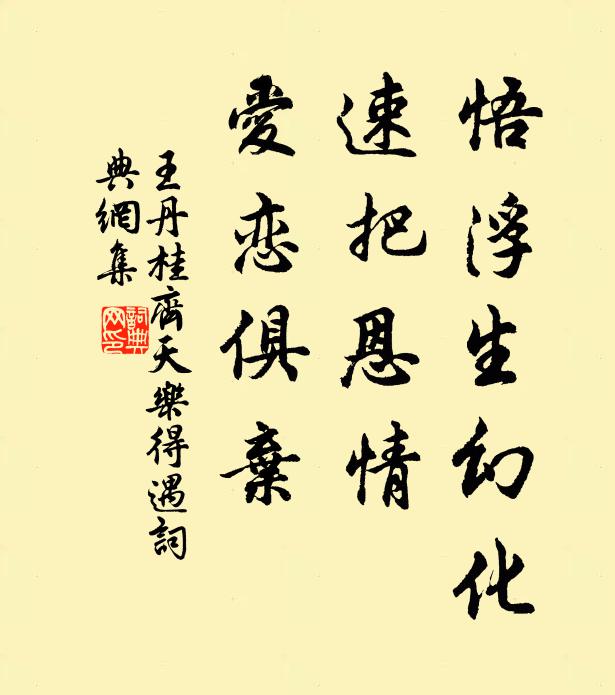 悟浮生幻化
速把恩情
愛恋俱棄
王丹桂齊天樂得遇詞
典網集
詞典网印